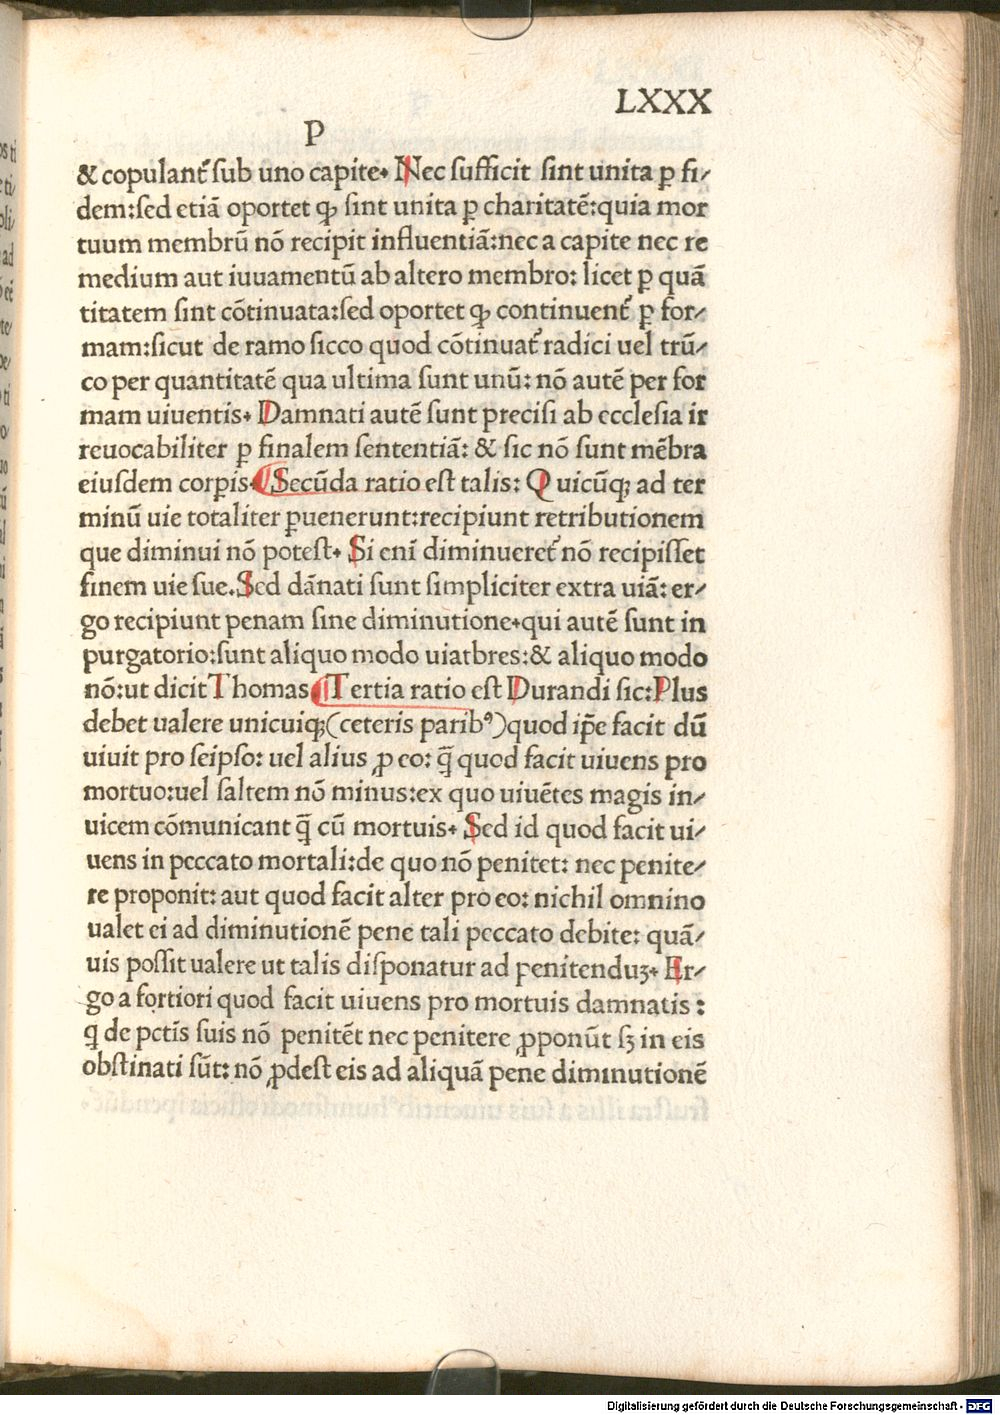 LXXX
P
& copulant᷑ sub uno capite. Nec sufficit sint unita ꝑ fi⸗
dem:sed etiā oportet ꝙ sint unita ꝑ charitatē:quia mor
tuum membrū nō recipit influentiā:nec a capite nec re
medium aut iuuamentū ab altero membro: licet ꝑ quā
titatem sint cōtinuata:sed oportet ꝙ continuent᷑ ꝑ for⸗
mam:sicut de ramo sicco quod cōtinuat᷑ radici uel trū⸗
co per quantitatē qua ultima sunt unū: nō autē per for
mam uiuentis. Damnati autē sunt precisi ab ecclesia ir
reuocabiliter ꝑ finalem sententiā: & sic nō sunt mēbra
eiusdem corꝑis. ¶Secūda ratio est talis: Quicūqꝫ ad ter
minū uie totaliter ꝑuenerunt:recipiunt retributionem
que diminui nō potest. Si enī diminueret᷑ nō recipisset
finem uie sue. Sed dānati sunt simpliciter extra uiā: er⸗
go recipiunt penam sine diminutione.qui autē sunt in
purgatorio:sunt aliquo modo uiatbres:& aliquo modo
nō:ut dicit Thomas ¶Tertia ratio est Durandi sic: Plus
debet ualere unicuiqꝫ(ceteris paribꝰ)quod ip̄e facit dū
uiuit pro seipso: uel alius ꝓ eo: q̄ quod facit uiuens pro
mortuo:uel saltem nō minus:ex quo uiuētes magis in⸗
uicem cōmunicant q̄ cū mortuis. Sed id quod facit ui⸗
uens in peccato mortali:de quo nō penitet: nec penite⸗
re proponit: aut quod facit alter pro eo: nichil omnino
ualet ei ad diminutionē pene tali peccato debite: quā⸗
uis possit ualere ut talis disponatur ad penitenduꝫ. Er⸗
go a fortiori quod facit uiuens pro mortuis damnatis :
q̄ de pctīs suis nō penitēt nec penitere ꝓponūt sꝫ in eis
obstinati sūt: nō ꝓdest eis ad aliquā pene diminutionē
Digitalisierung gefördert durch die Deutsche Forschungsgemeinschaft - DFG